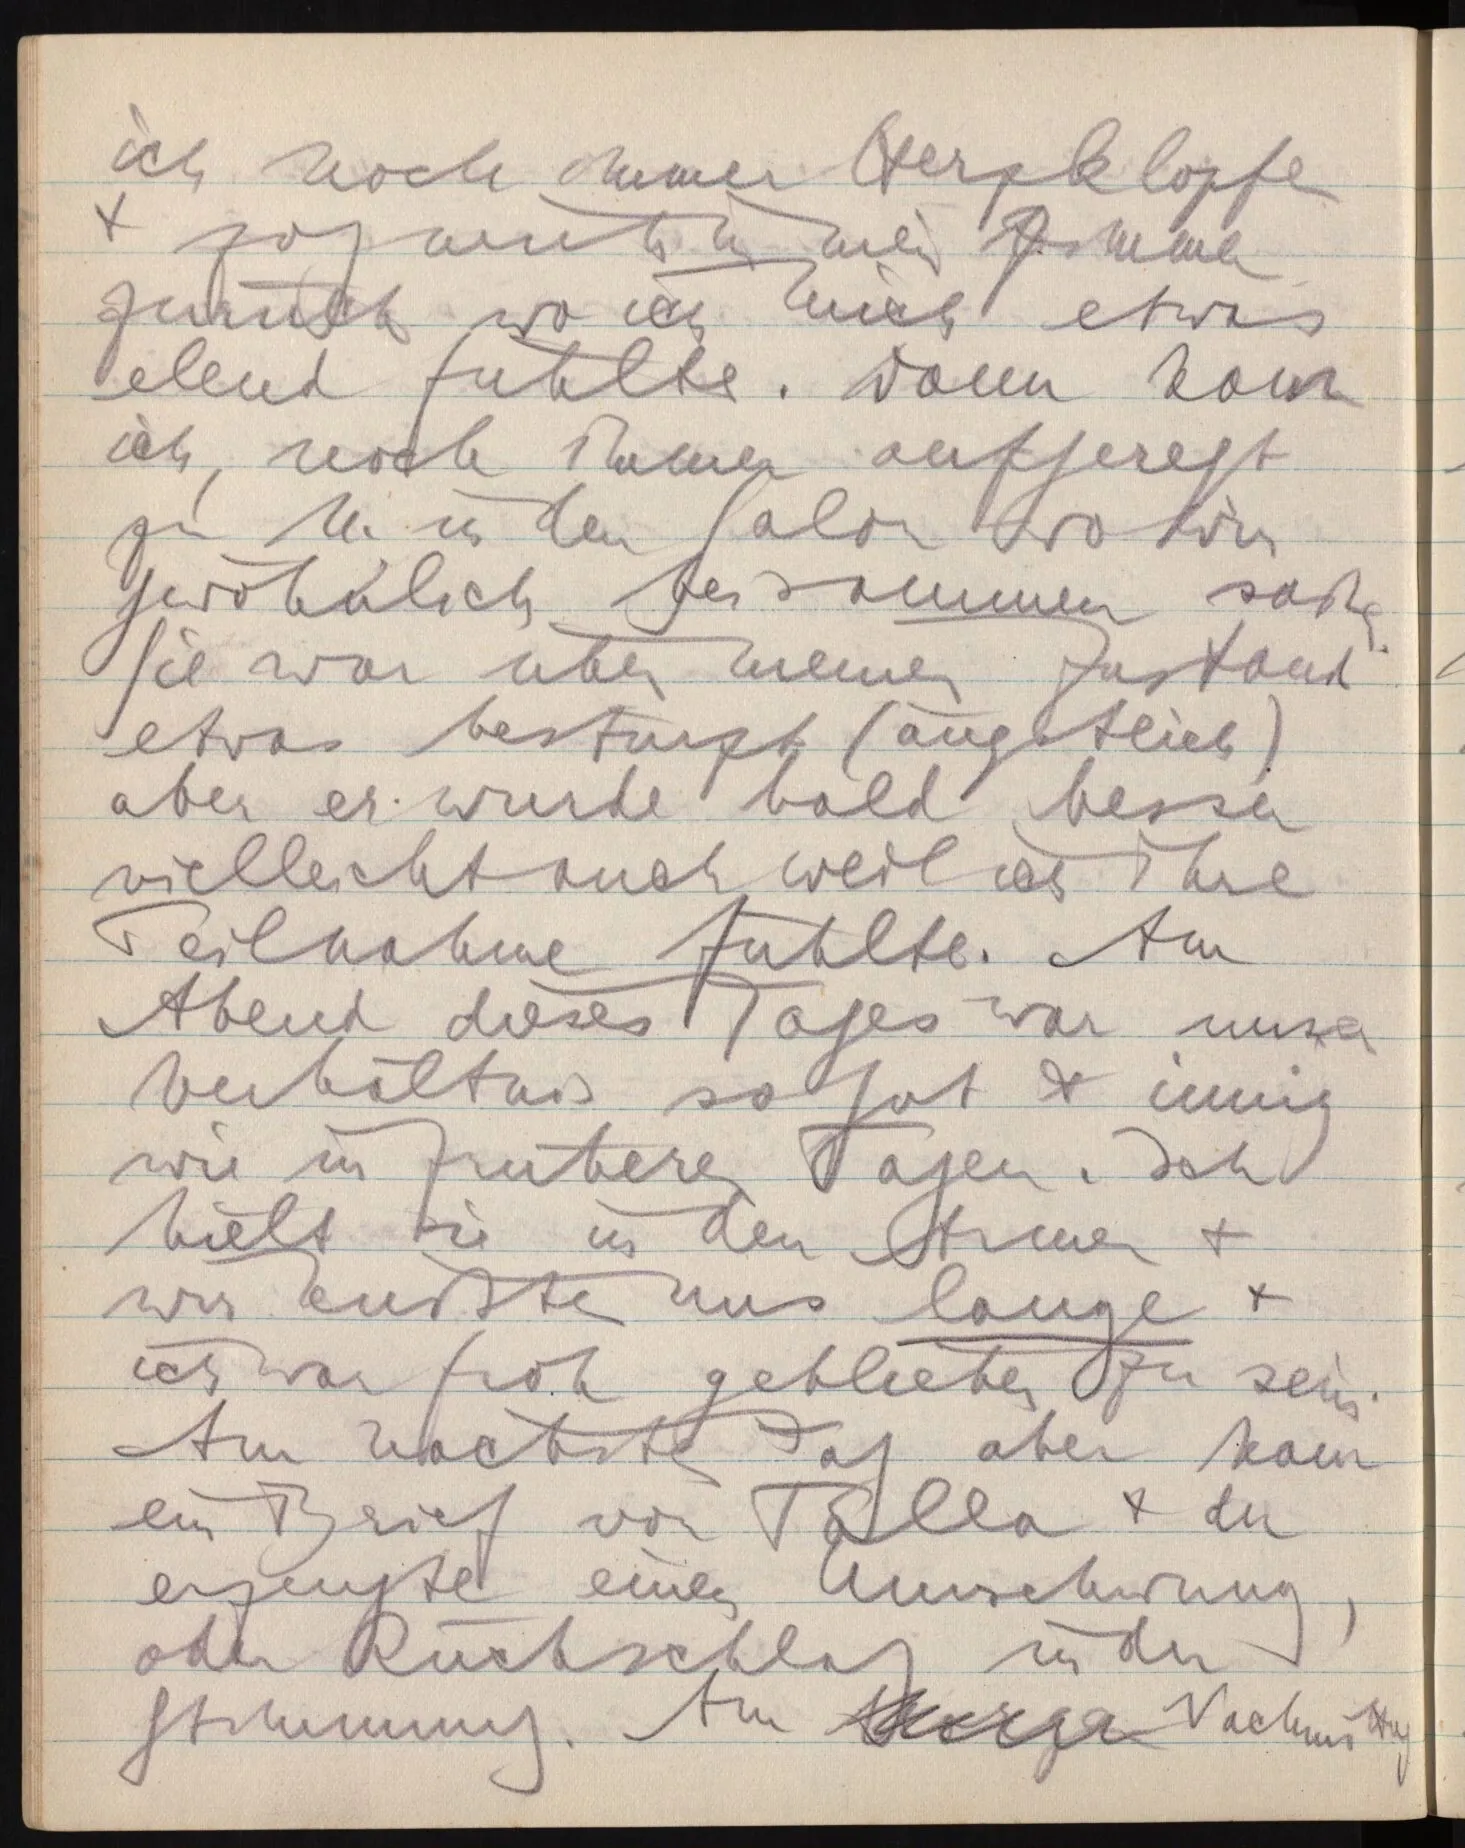 ich noch immer Herzklopfen
+ zog mich in mein Zimmer
zurück wo ich mich etwas
elend fühlte. Dann kam
ich, noch immer aufgeregt
zu M. in den Salon wo wir
gewöhnlich beisammen saßen.
Sie war über meinen Zustand
etwas bestürzt (ängstlich)
aber er wurde bald besser
vielleicht auch weil ich ihre
Teilnahme fühlte. Am
Abend dieses Tages war unser
Verhältnis so gut & innig
wie in früheren Tagen. Ich
hielt sie in den Armen +
wir küßten uns lange +
ich war froh geblieben zu sein.
Am nächsten Tag aber kam
ein Brief von Talla + der
erzeugte einen Umschwung,
oder Rückschlag in der
Stimmung. Am Morgen Nachmittag